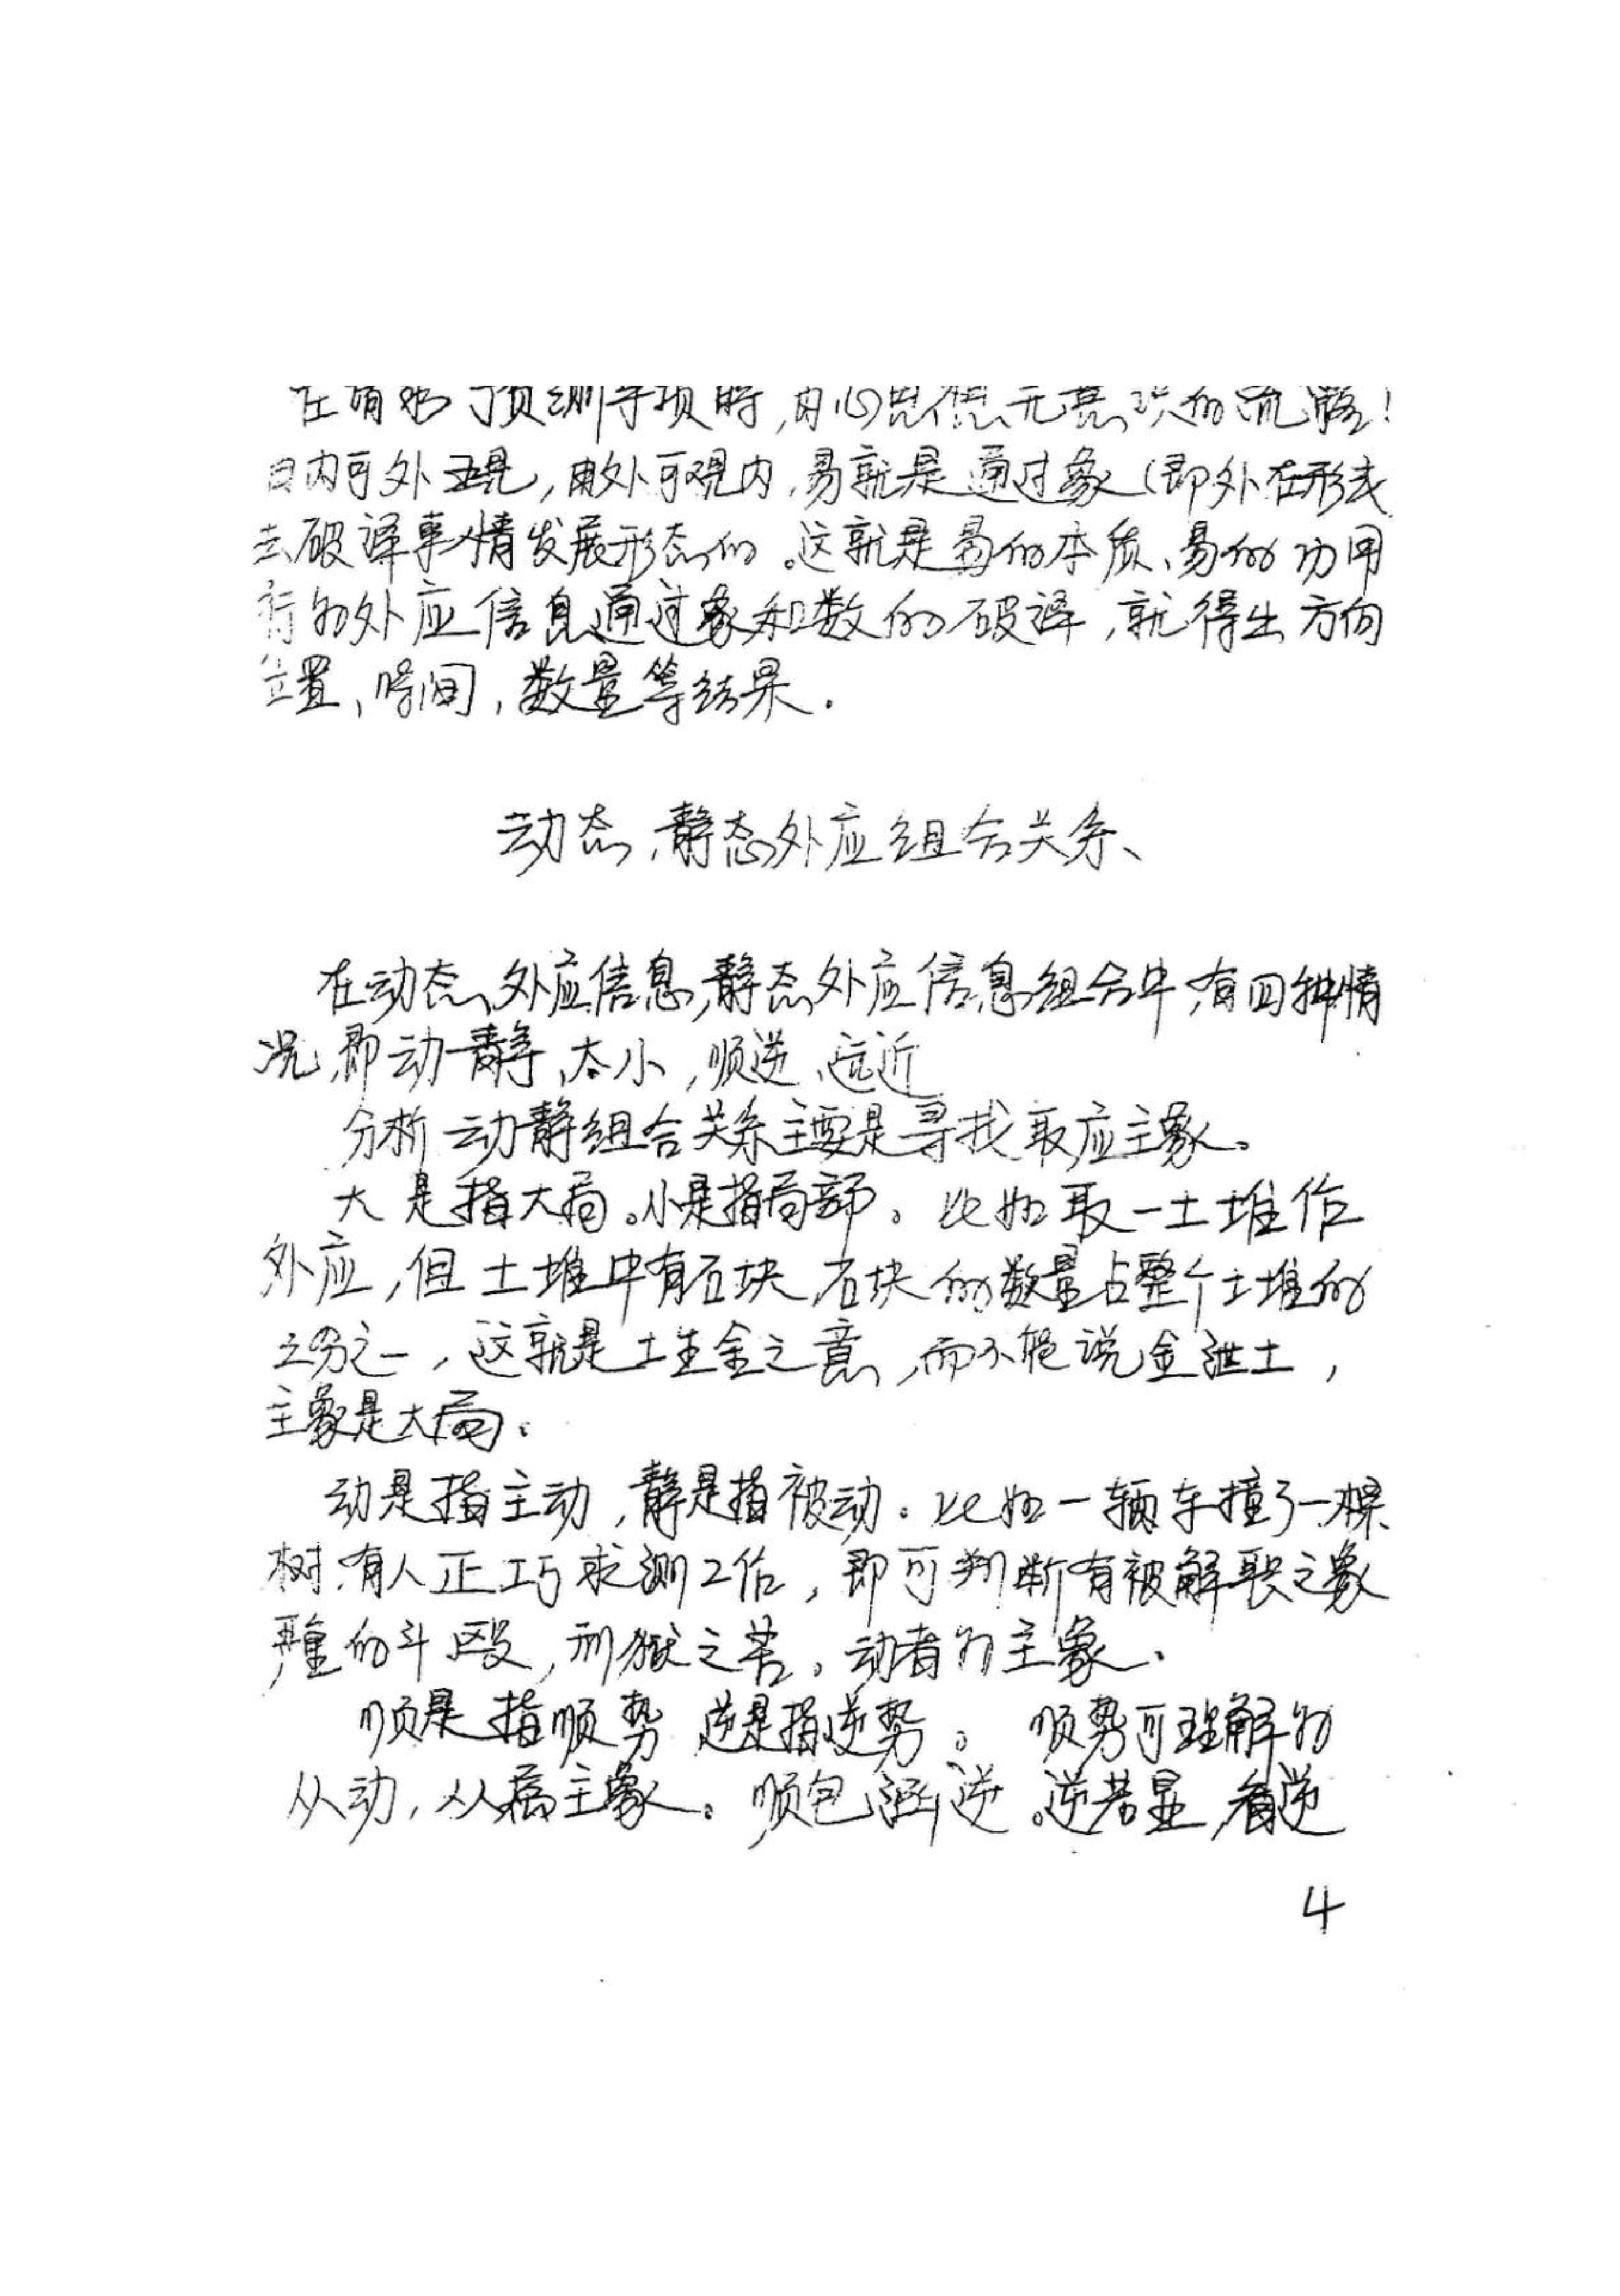 在有 预测事项时,内心思想无意识的流露!
由内可外观,由外可观内,易就是通过象(即外在形式
去破译事情发展形态的。这就是易的本质、易的功用
行的外应信息通过象和数的破译,就得出方向
位置、时间,数量等结果.
动态,静态外应组合关系、
在动态外应信息,静态外应信息组合中,有四种情
况,即动静、大小,顺逆、远近
分析动静组合关系主要是寻找取应主象。
大是指大局。小是指局部。比如取一土堆作
外应,但土堆中有石块,石块的数量占整个土堆的
分之一,这就是土生金之意,而不能说金泄土,
主象是大局。
动是指主动,静是指被动。比如一辆车撞了一棵
树,有人正巧求测工作,即可判断有被解职之象
严重的斗殴,刑狱之苦。动者为主象.
顺是指顺势 逆是指逆势。 顺势可理解为
从动,从属主象。顺包涵逆。逆若显,看逆
4